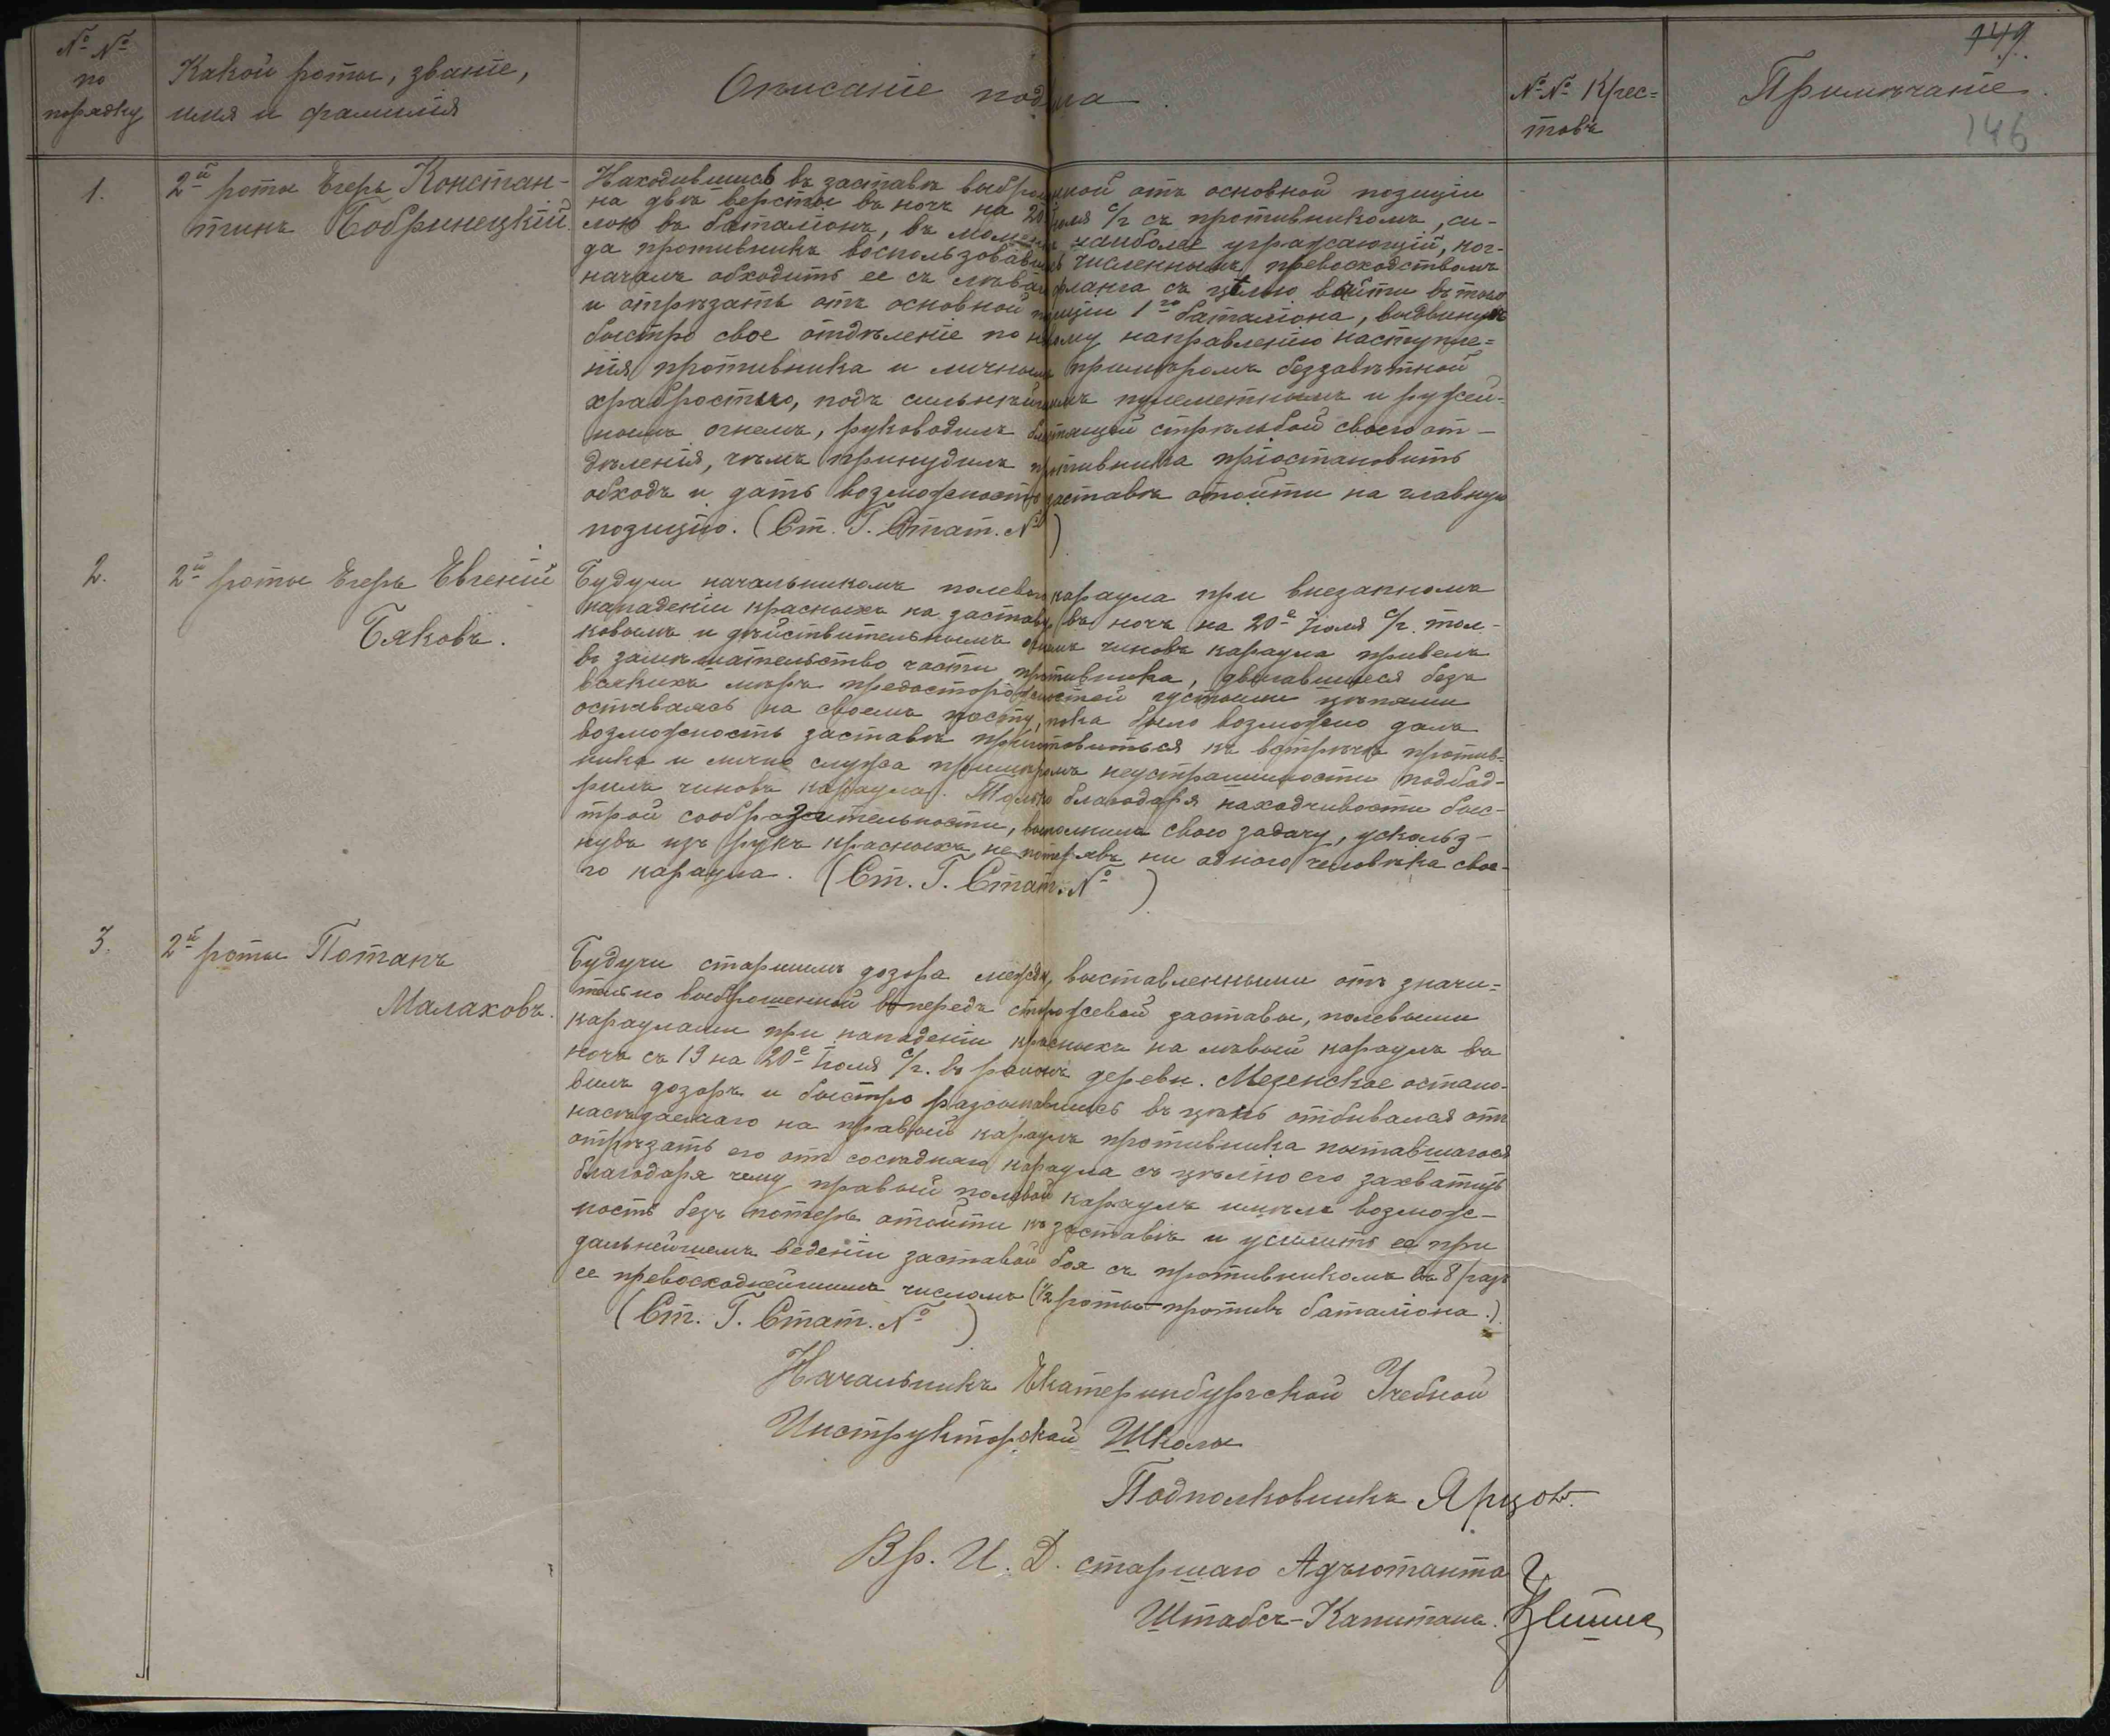 149.
146
№ №
по
порядку
Какой роты, званіе,
имя и фамилія
Описаніе подвига.
№ № Крес=
товъ
Примѣчаніе.
1.
2й роты Егерь Констан-
тинъ Бобринецкій.
Находившись въ заставѣ выброшенной отъ основной позиціи
на двѣ версты въ ночь на 20 Іюля с/г съ противникомъ, си-
лою въ баталіонъ, въ моментъ наиболѣе угрожающій, ког-
да противникъ воспользовавшись численнымъ превосходствомъ
началъ обходить ее съ лѣваго фланга съ цѣлью выйти въ тылъ
и отрѣзать отъ основной позиціи 1го баталіона, выдвинулъ
быстро свое отдѣленіе по новому направленію наступле=
нія противника и личнымъ примѣромъ беззавѣтной
храбростью, подъ сильнѣйшимъ пулеметнымъ и ружей-
нымъ огнемъ, руководилъ блестящей стрѣльбой своего от-
дѣленія, чѣмъ принудилъ противника пріостановить
обходъ и дать возможность заставѣ отойти на главную
позицію. (Ст. Г. Стат. № )
2.
2й роты Егерь Евгеній
Бяковъ.
Будучи начальникомъ полевого караула при внезапномъ
нападеніи красныхъ на заставу въ ночь на 20е Іюля с/г. тол-
ковымъ и дѣйствительнымъ огнемъ чиновъ караула привелъ
въ замѣшательство части противника, двигавшіеся безъ
всякихъ мѣръ предосторожностей густыми цѣпями
оставаясь на своемъ посту, пока было возможно далъ
возможность заставѣ приготовиться къ встрѣчѣ против=
ника и лично служа примѣромъ неустрашимости подбод-
рилъ чиновъ караула. Только благодаря находчивости быс-
трой сообразительности, выполнилъ свою задачу, ускольз-
нувъ изъ рукъ красныхъ не потерявъ ни одного человѣка свое-
го караула. (Ст. Г. Стат. № )
3.
2й роты Потапъ
Малаховъ.
Будучи старшимъ дозора между, выставленными отъ значи=
тельно выброшенной впередъ сторожевой заставы, полевыми
караулами при нападеніи красныхъ на лѣвый караулъ въ
ночь съ 19 на 20е Іюля с/г. въ районѣ деревн. Мезенское остано-
вилъ дозоръ и быстро разсыпавшись въ цѣпь отбивался отъ
насѣдаемаго на правый караулъ противника пытавшагося
отрѣзать его отъ сосѣдняго караула съ цѣлью его захватить
благодаря чему правый полевой караулъ имѣлъ возмож-
ность безъ потерь отойти къ заставѣ и усилить ее при
дальнейшемъ веденіи заставой боя съ противникомъ въ 8 разъ
ее превосходнейшимъ числомъ (1/2 роты-противъ баталіона.).
(Ст. Г. Стат. № )
Начальникъ Екатеринбургской Учебной
Инструкторской Школы
Подполковникъ Ярцов.
Вр. И. Д. старшаго Адъютанта
Штабсъ-Капитанъ.